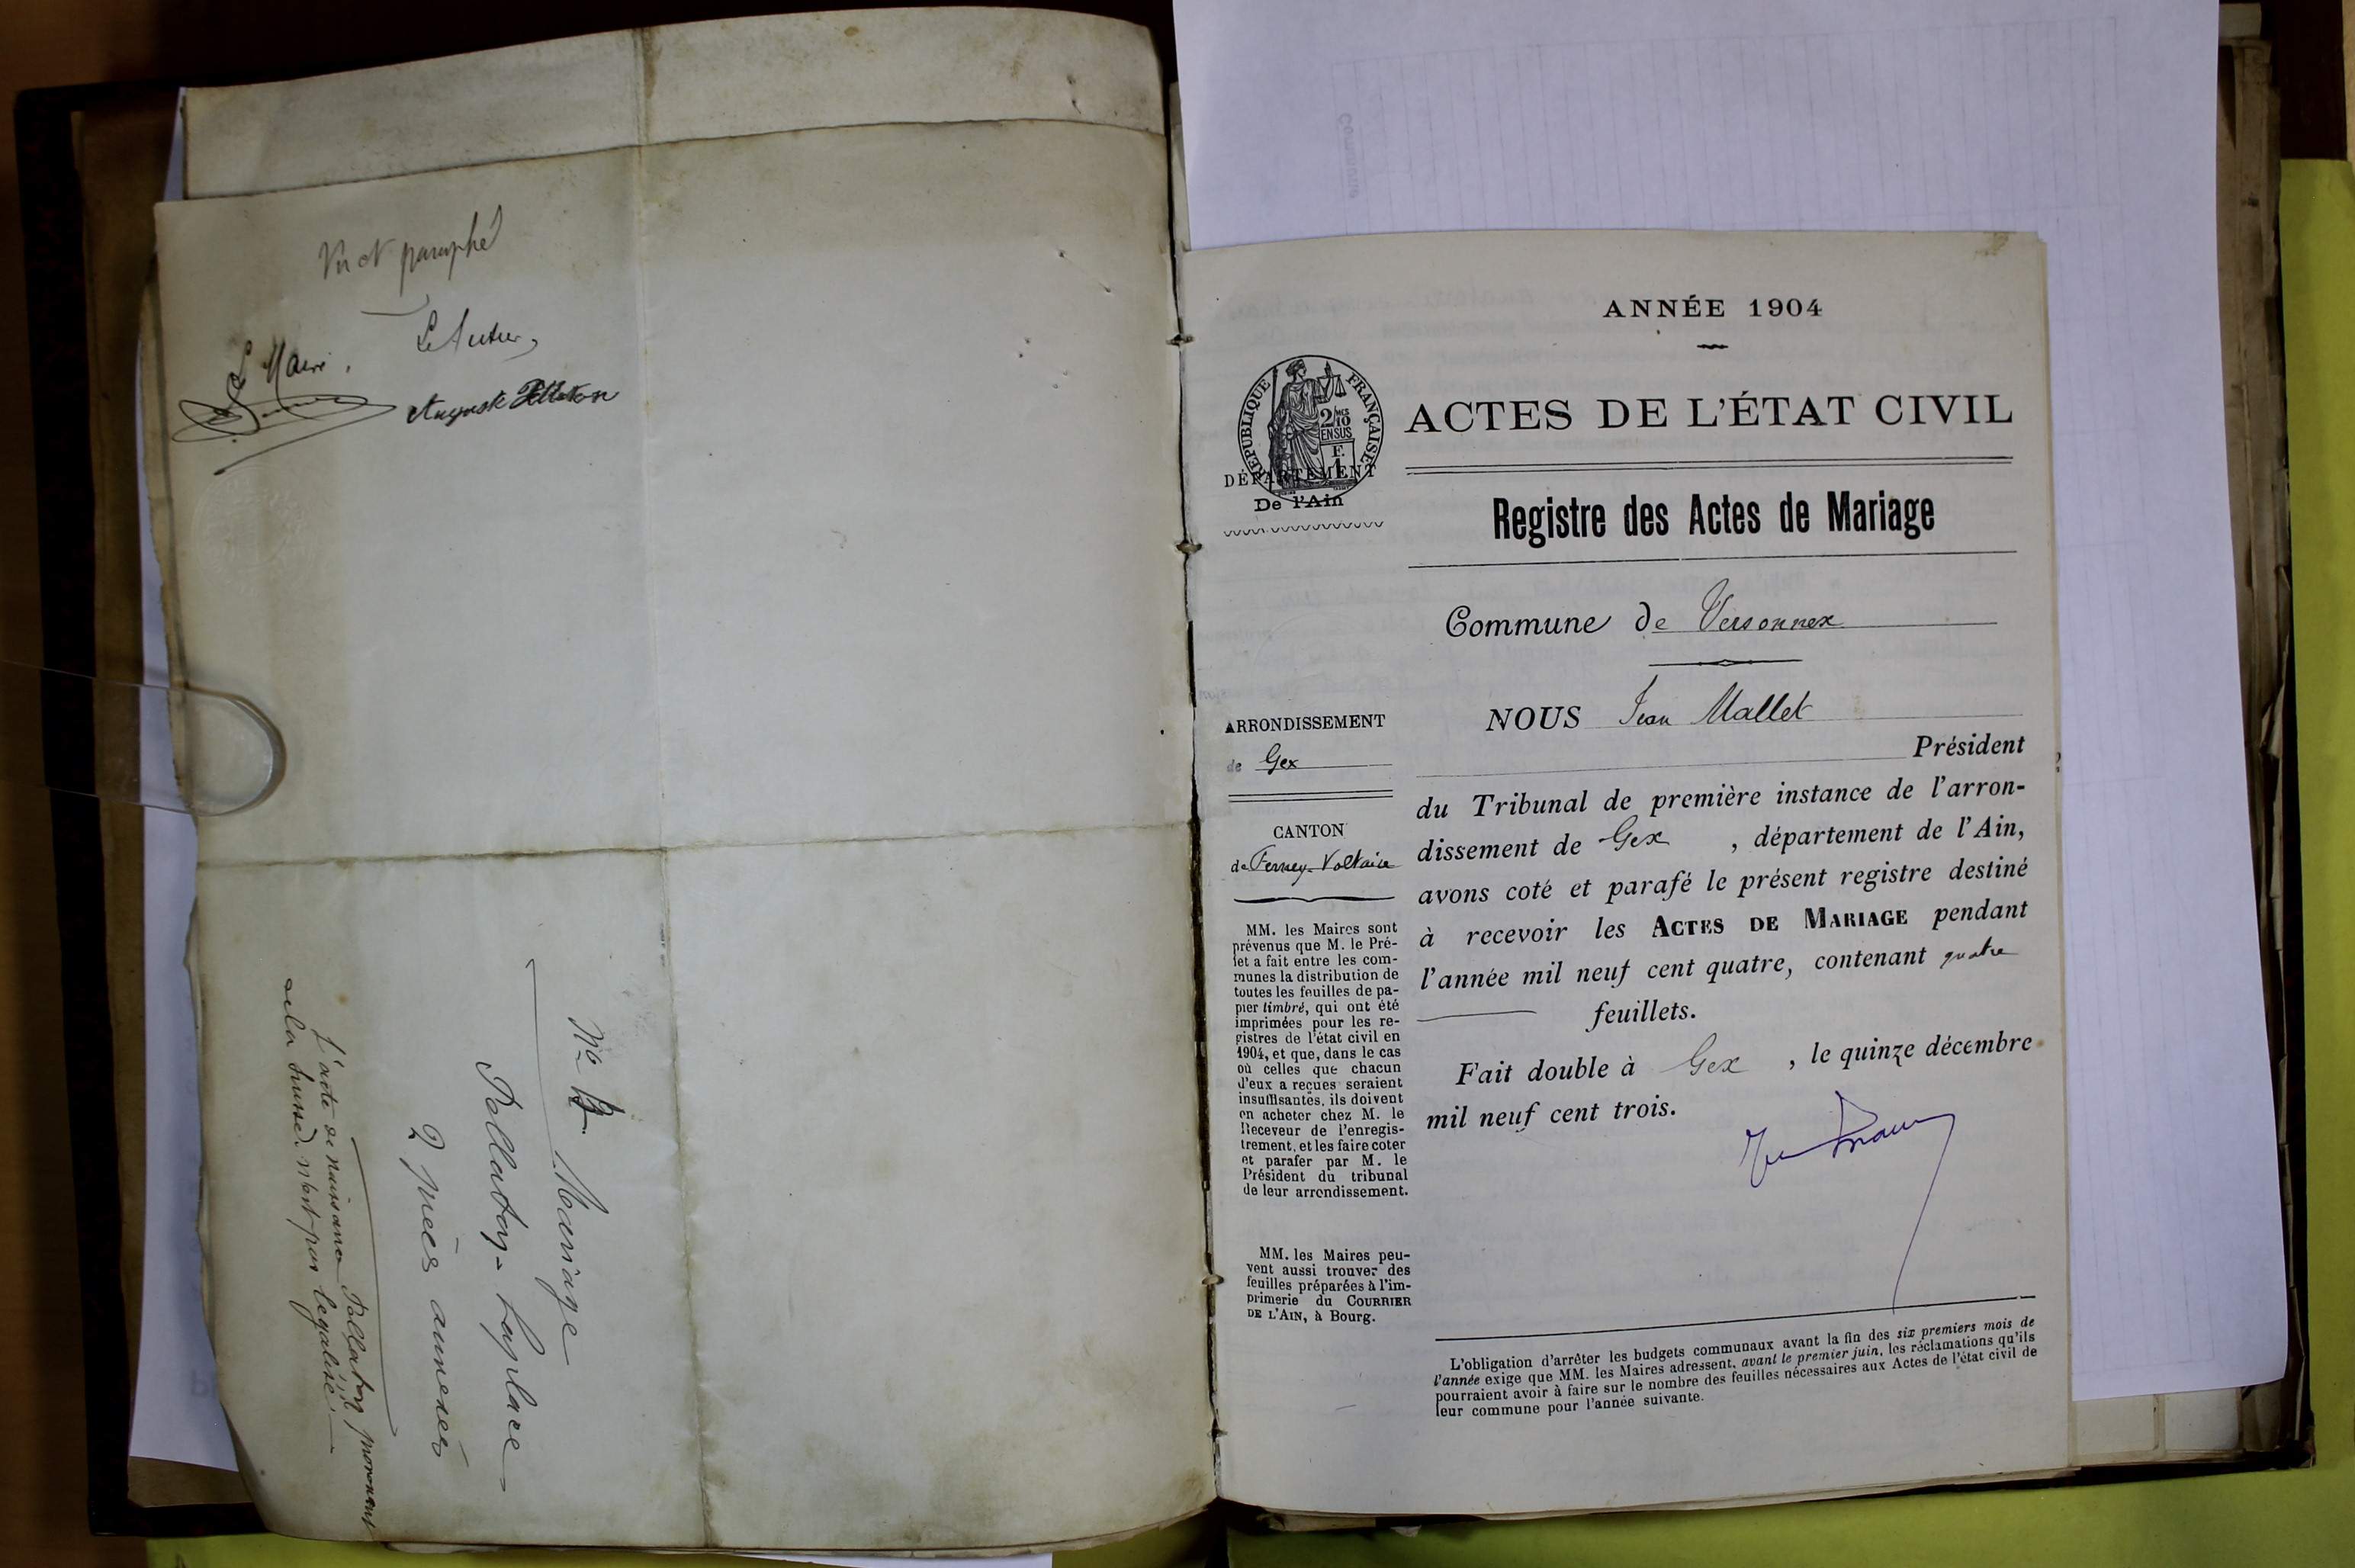 Vu et paraphé
Le Maire,
Le Tuteur,
Auguste Pellaton
No 4. Mariage
Pellaton - Laplace
2 pièces annexées
L'acte de naissance Pellaton provenant
de la Suisse n'est pas légalisé.
ANNÉE 1904
RÉPUBLIQUE FRANÇAISE
2/10 MES
EN SUS
F.
1
DÉPARTEMENT
De l'Ain
ACTES DE L'ÉTAT CIVIL
Registre des Actes de Mariage
Commune de Versonnex
ARRONDISSEMENT
de Gex
CANTON
de Ferney-Voltaire
MM. les Maires sont
prévenus que M. le Pré-
fet a fait entre les com-
munes la distribution de
toutes les feuilles de pa-
pier timbré, qui ont été
imprimées pour les re-
gistres de l'état civil en
1904, et que, dans le cas
où celles que chacun
d'eux a reçues seraient
insuffisantes, ils doivent
en acheter chez M. le
Receveur de l'enregis-
trement, et les faire coter
et parafer par M. le
Président du tribunal
de leur arrondissement.
MM. les Maires peu-
vent aussi trouver des
feuilles préparées à l'im-
primerie du COURRIER
DE L'AIN, à Bourg.
NOUS Jean Mallet
Président
du Tribunal de première instance de l'arron-
dissement de Gex , département de l'Ain,
avons coté et parafé le présent registre destiné
à recevoir les ACTES DE MARIAGE pendant
l'année mil neuf cent quatre, contenant quatre
feuillets.
Fait double à Gex , le quinze décembre
mil neuf cent trois.
L'obligation d'arrêter les budgets communaux avant la fin des six premiers mois de
l'année exige que MM. les Maires adressent, avant le premier juin, les réclamations qu'ils
pourraient avoir à faire sur le nombre des feuilles nécessaires aux Actes de l'état civil de
leur commune pour l'année suivante.